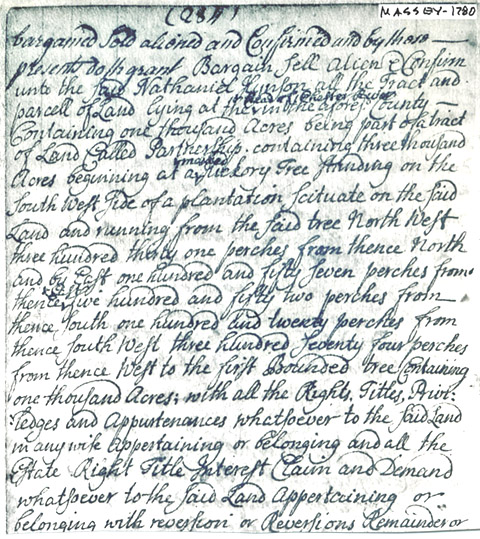 (284)
MASSEY-1780
bargained Sold aliened and Confirmed and by these
presents doth grant Bargain Sell Alien & Confirm
unto the said Nathaniel Hynson all the Tract and
parcel of Land lying at the head of Chester River in the aforesd County
Containing one thousand Acres being part of a tract
of Land Called Partnership containing three thousand
Acres beginning at a marked Hickory Tree standing on the
South West side of a plantation Scituate on the said
Land and running from the said tree North West
three hundred thirty one perches from thence North
and by East one hundred and fifty Seven perches from
thence East five hundred and fifty two perches from
thence South one hundred and twenty perches from
thence South West three hundred Seventy four perches
from thence West to the first Bounded tree Containing
one thousand Acres; with all the Rights, Titles, Privi:
:ledges and Appurtenances whatsoever to the said Land
in any wise appertaining or belonging and all the
Estate Right Title Interest Claim and Demand
whatsoever to the said Land Appertaining or
belonging with reversion or Reversions Remainder or